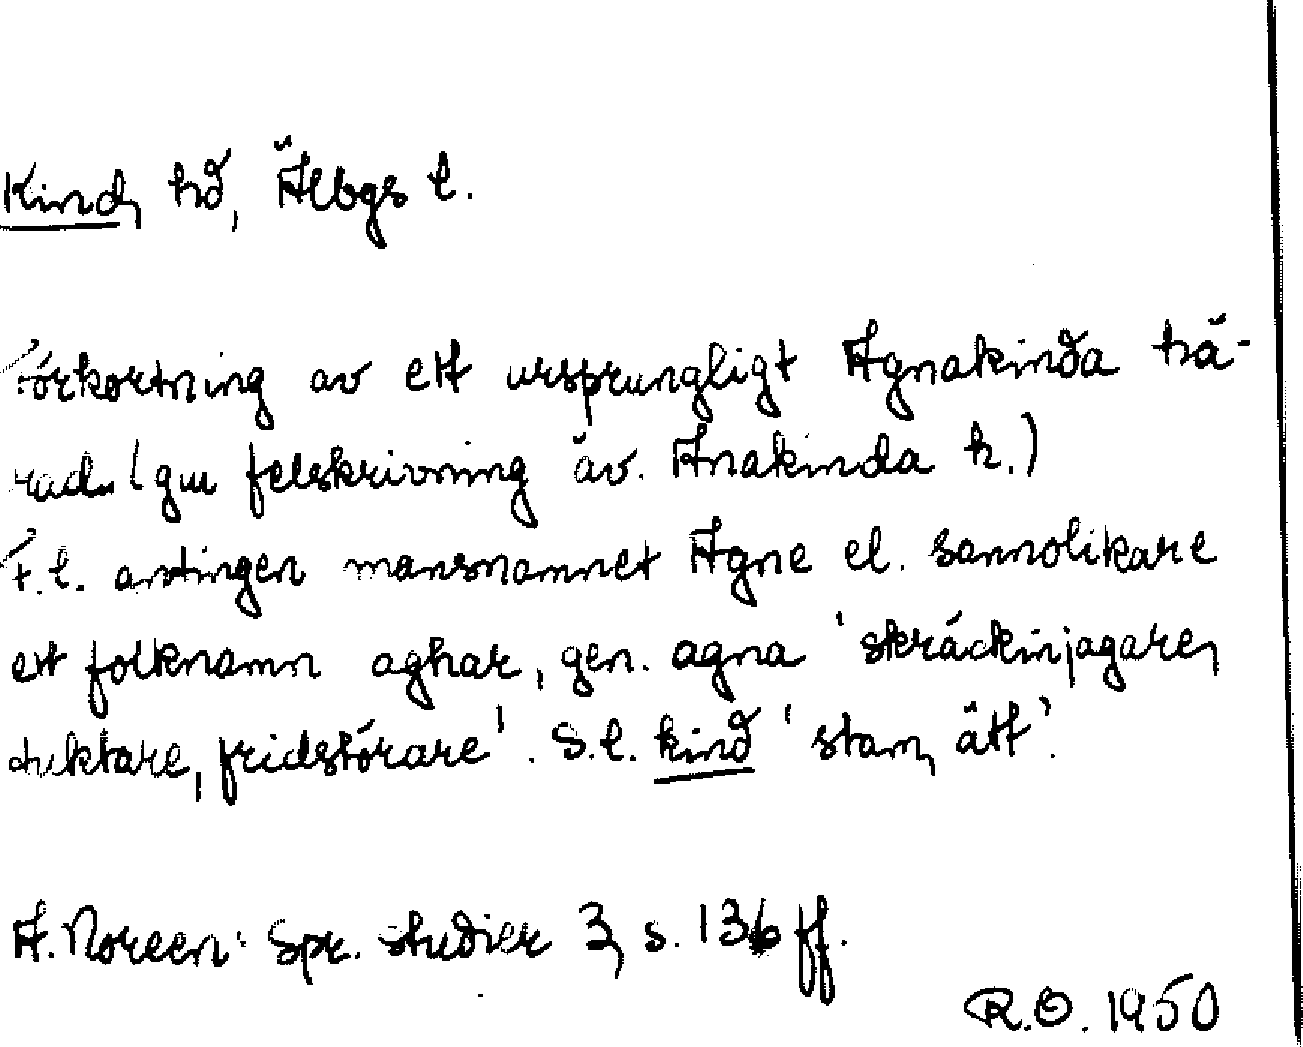 Kind, hd, Älvbgs l.
Förkortning av ett ursprungligt Agnakinda hä-
rad. (gm felskrivning äv. Anakinda h.)
F.l. antingen mansnamnet Agne el. sannolikare
ett folknamn aghar, gen. agna 'skräckinjagare,
tuktare, fridstörare'. S.l. kind 'stam, ätt'.
A. Noreen: Spr. studier 3, s. 136 ff.
R.O. 1950